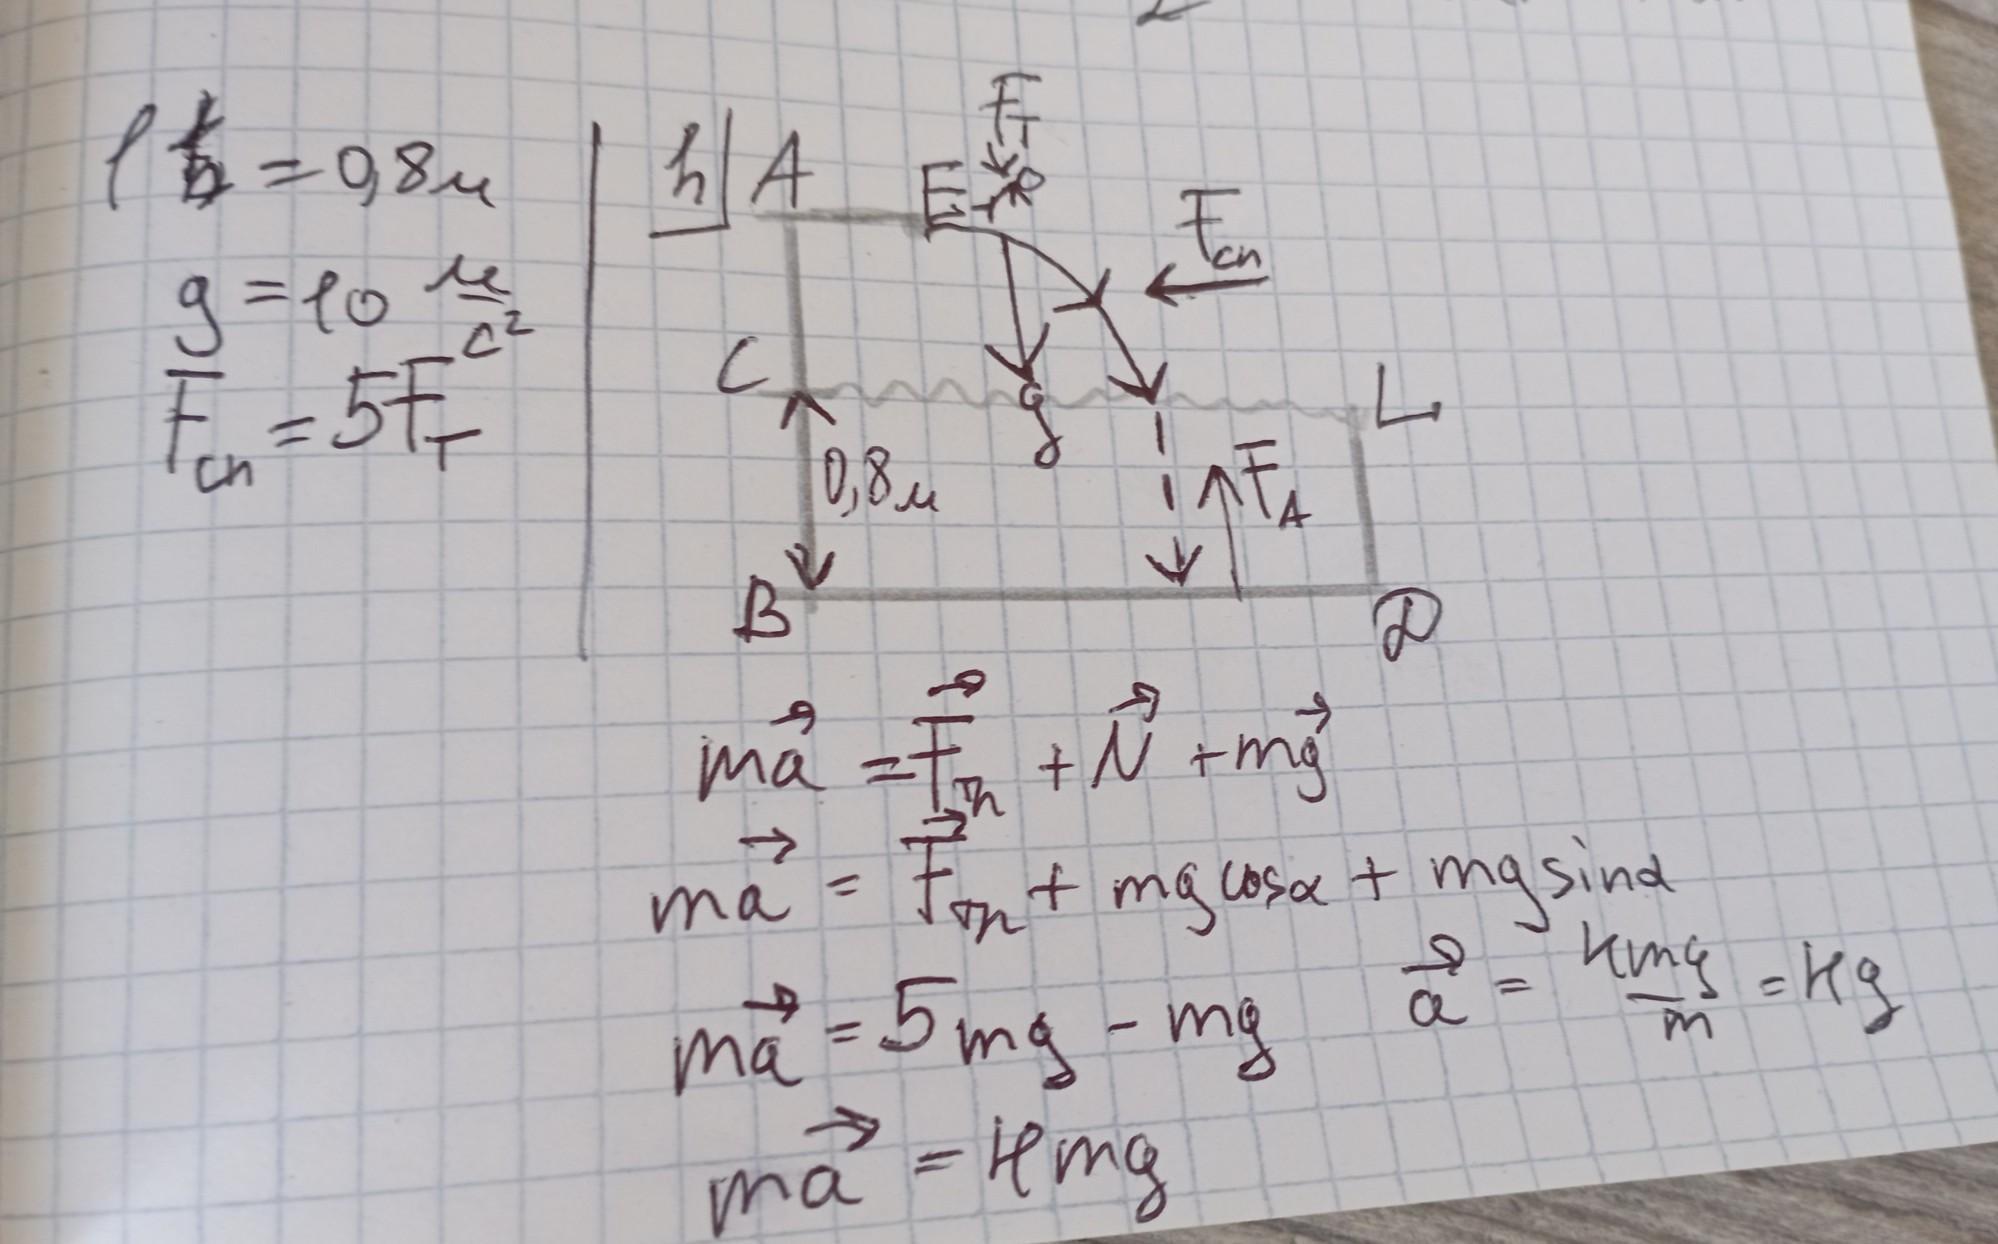 l = 0,8м
g = 10 м/с²
Fсп = 5Fт
h
A
E
Fт
Fсп
C
g
L
0,8м
FA
B
D
ma⃗ = F⃗тп + N⃗ + mg⃗
ma⃗ = F⃗тп + mg cosα + mg sinα
ma⃗ = 5mg - mg
a⃗ = 4mg/m = 4g
ma⃗ = 4mg